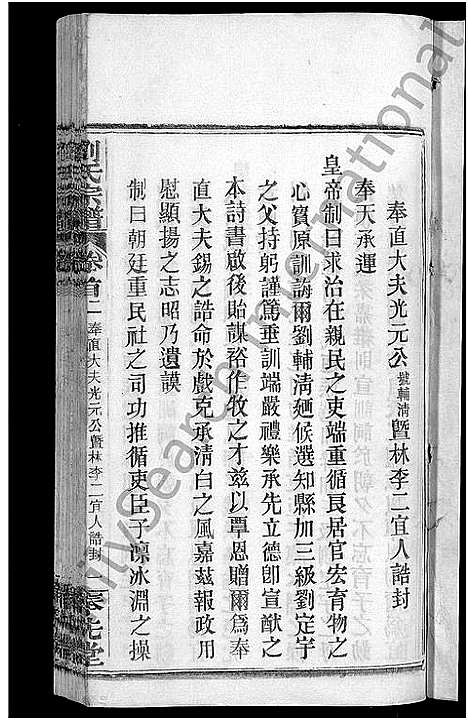 奉直大夫光元公號輔清暨林李二宜人誥封
奉天承運
皇帝制曰求治在親民之吏端重循良居官宏育物之
心實原訓誨爾劉輔清廼候選知縣加三級劉定宇
之父持躬謹篤垂訓端嚴禮樂承先立德卽宣猷之
本詩書啟後貽謀裕作牧之才茲以覃恩贈爾爲奉
直大夫錫之誥命於戲克承清白之風嘉茲報政用
慰顯揚之志昭乃遺謨
制曰朝廷重民社之司功推循吏臣子凛冰淵之操
劉氏宗譜 卷首二 奉直大夫光元公暨林李二宜人誥封 一